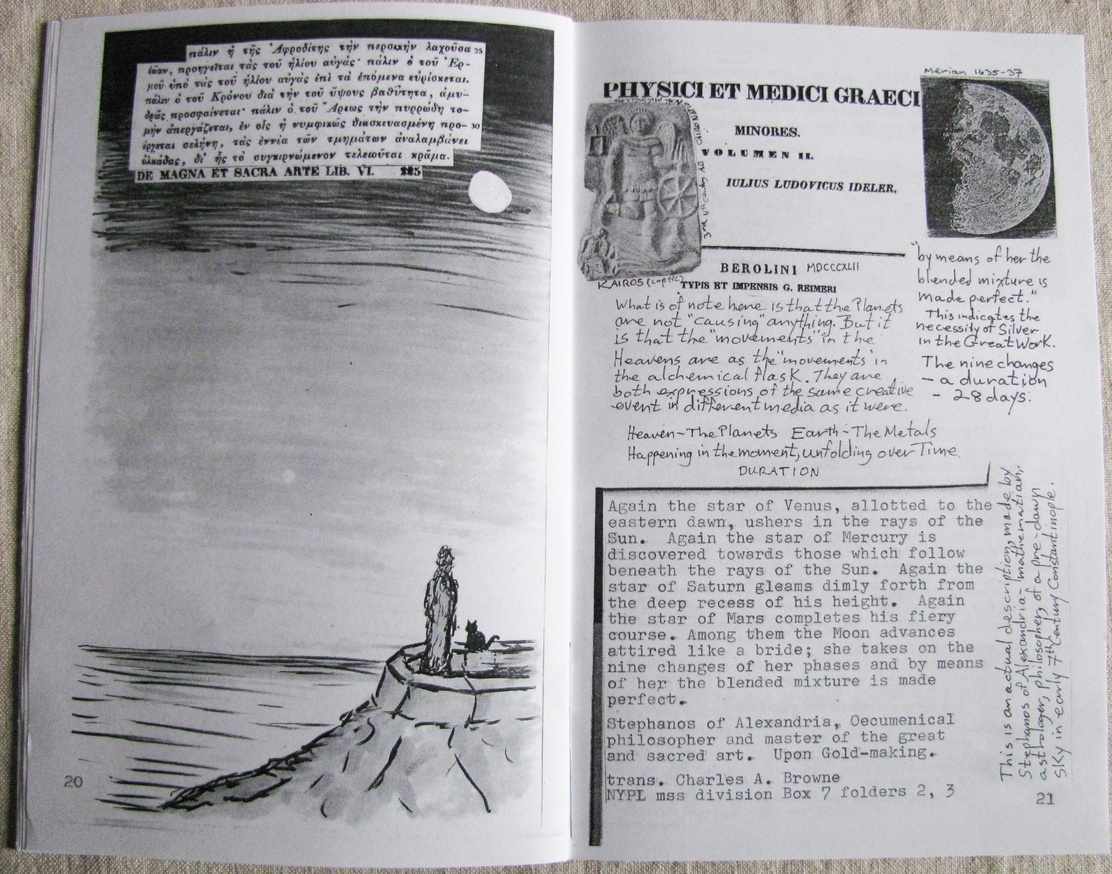 πάλιν ἡ τῆς Ἀφροδίτης τὴν περσικὴν λαχοῦσα 25
ἑῴαν, προηγεῖται τὰς τοῦ ἡλίου αὐγάς· πάλιν ὁ τοῦ Ἑρ-
μοῦ ὑπὸ τὰς τοῦ ἡλίου αὐγὰς ἐπὶ τὰ ἑπόμενα εὑρίσκεται.
πάλιν ὁ τοῦ Κρόνου διὰ τὴν τοῦ ὕψους βαθύτητα, ἀμυ-
δρῶς προσφαίνεται· πάλιν ὁ τοῦ Ἄρεως τὴν πυρρώδη το-
μὴν ἀπεργάζεται, ἐν οἷς ἡ νυμφικῶς διασκευασμένη προ- 30
έρχεται σελήνη, τὰς ἐννέα τῶν τμημάτων ἀναλαμβάνει
ὁλκάδας, δι' ἧς τὸ συγκιρνώμενον τελειοῦται κρᾶμα.
DE MAGNA ET SACRA ARTE LIB. VI.
20
Merian 1635-37
PHYSICI ET MEDICI GRAECI
MINORES.
VOLUMEN II.
IULIUS LUDOVICUS IDELER.
BEROLINI MDCCCXLII
TYPIS ET IMPENSIS G. REIMERI
KAIROS (coptic)
What is of note here is that the Planets
are not "causing" anything. But it
is that the "movements" in the
Heavens are as the "movements" in
the alchemical flask. They are
both expressions of the same creative
event in different media as it were.
Heaven-The Planets Earth-The Metals
Happening in the moment, unfolding over Time.
DURATION
"by means of her the
blended mixture is
made perfect."
This indicates the
necessity of Silver
in the Great Work.
The nine changes
- a duration
- 28 days.
Again the star of Venus, allotted to the
eastern dawn, ushers in the rays of the
Sun. Again the star of Mercury is
discovered towards those which follow
beneath the rays of the Sun. Again the
star of Saturn gleams dimly forth from
the deep recess of his height. Again
the star of Mars completes his fiery
course. Among them the Moon advances
attired like a bride; she takes on the
nine changes of her phases and by means
of her the blended mixture is made
perfect.
Stephanos of Alexandria, Oecumenical
philosopher and master of the great
and sacred art. Upon Gold-making.
trans. Charles A. Browne
NYPL mss division Box 7 folders 2, 3
This is an actual description, made by
Stephanos of Alexandria- mathematician,
astrologer, philosopher, of a pre-dawn
sky in early 7th Century Constantinople.
21